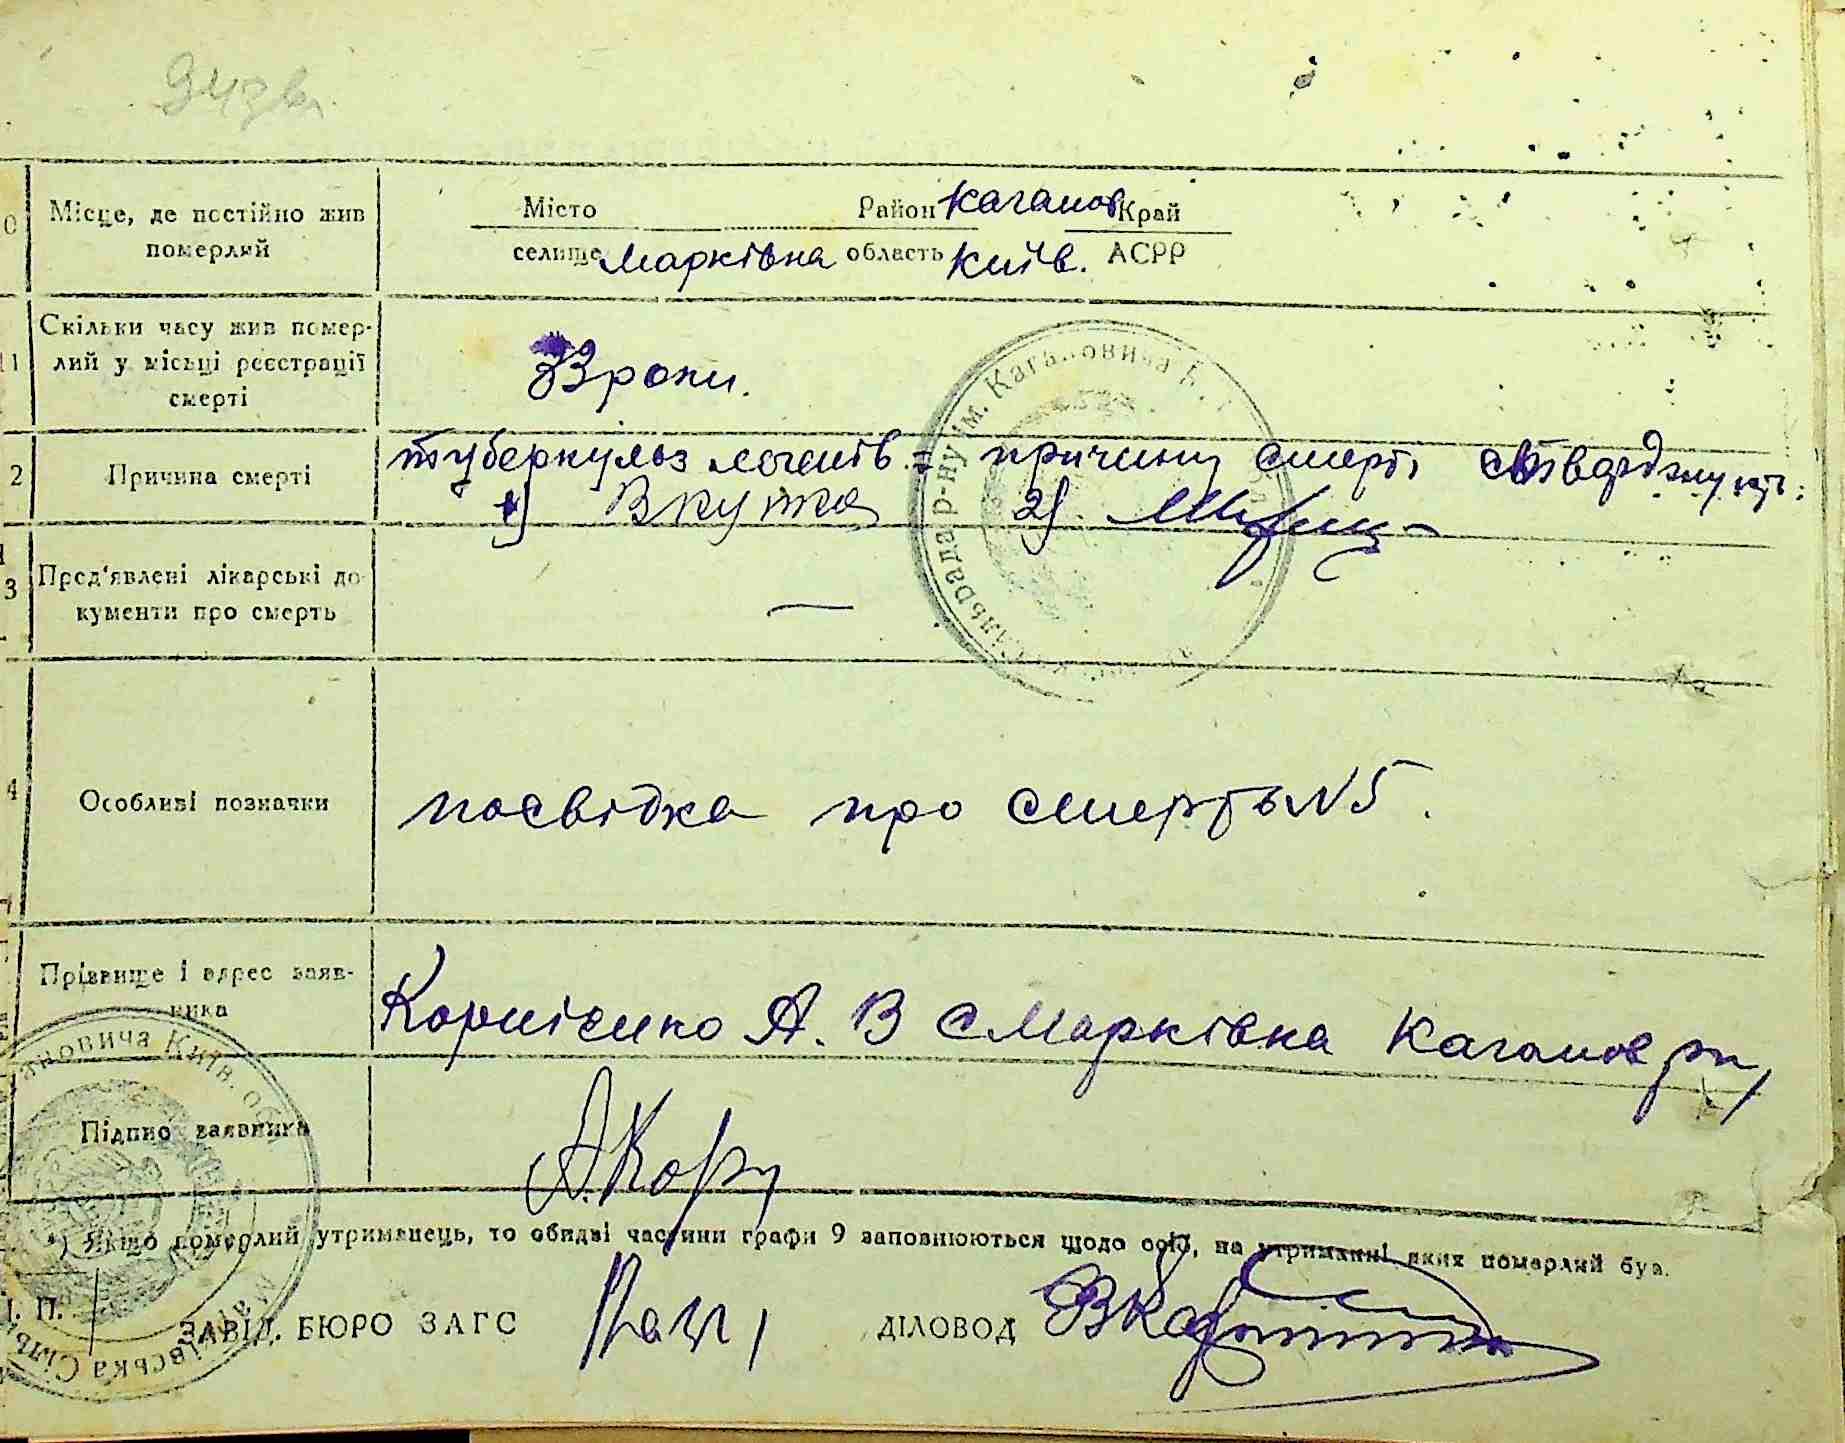 Місце, де постійно жив
померлий
Місто Район Каганов Край
селище Марківна область Київ. АСРР
11 Скільки часу жив помер-
лий у місьці реєстрації
смерті
роки.
2 Причина смерті
туберкульоз легенів причину смерті
1) 2)
3 Пред'явлені лікарські до
кументи про смерть
—
4 Особливі позначки
посвідка про смерть N5.
Прізвище і адрес заяв-
ника
Корнієнко А. В с Марківна Каганов рн
Підпис заявника
А.Кор
*) Якщо померлий утриманець, то обидві частини графи 9 заповнюються щодо осіб, на утриманні яких померлий був.
П. ЗАВІД. БЮРО ЗАГС ДІЛОВОД
р-ну ім. Кагановича
Кагановича Київ. обл